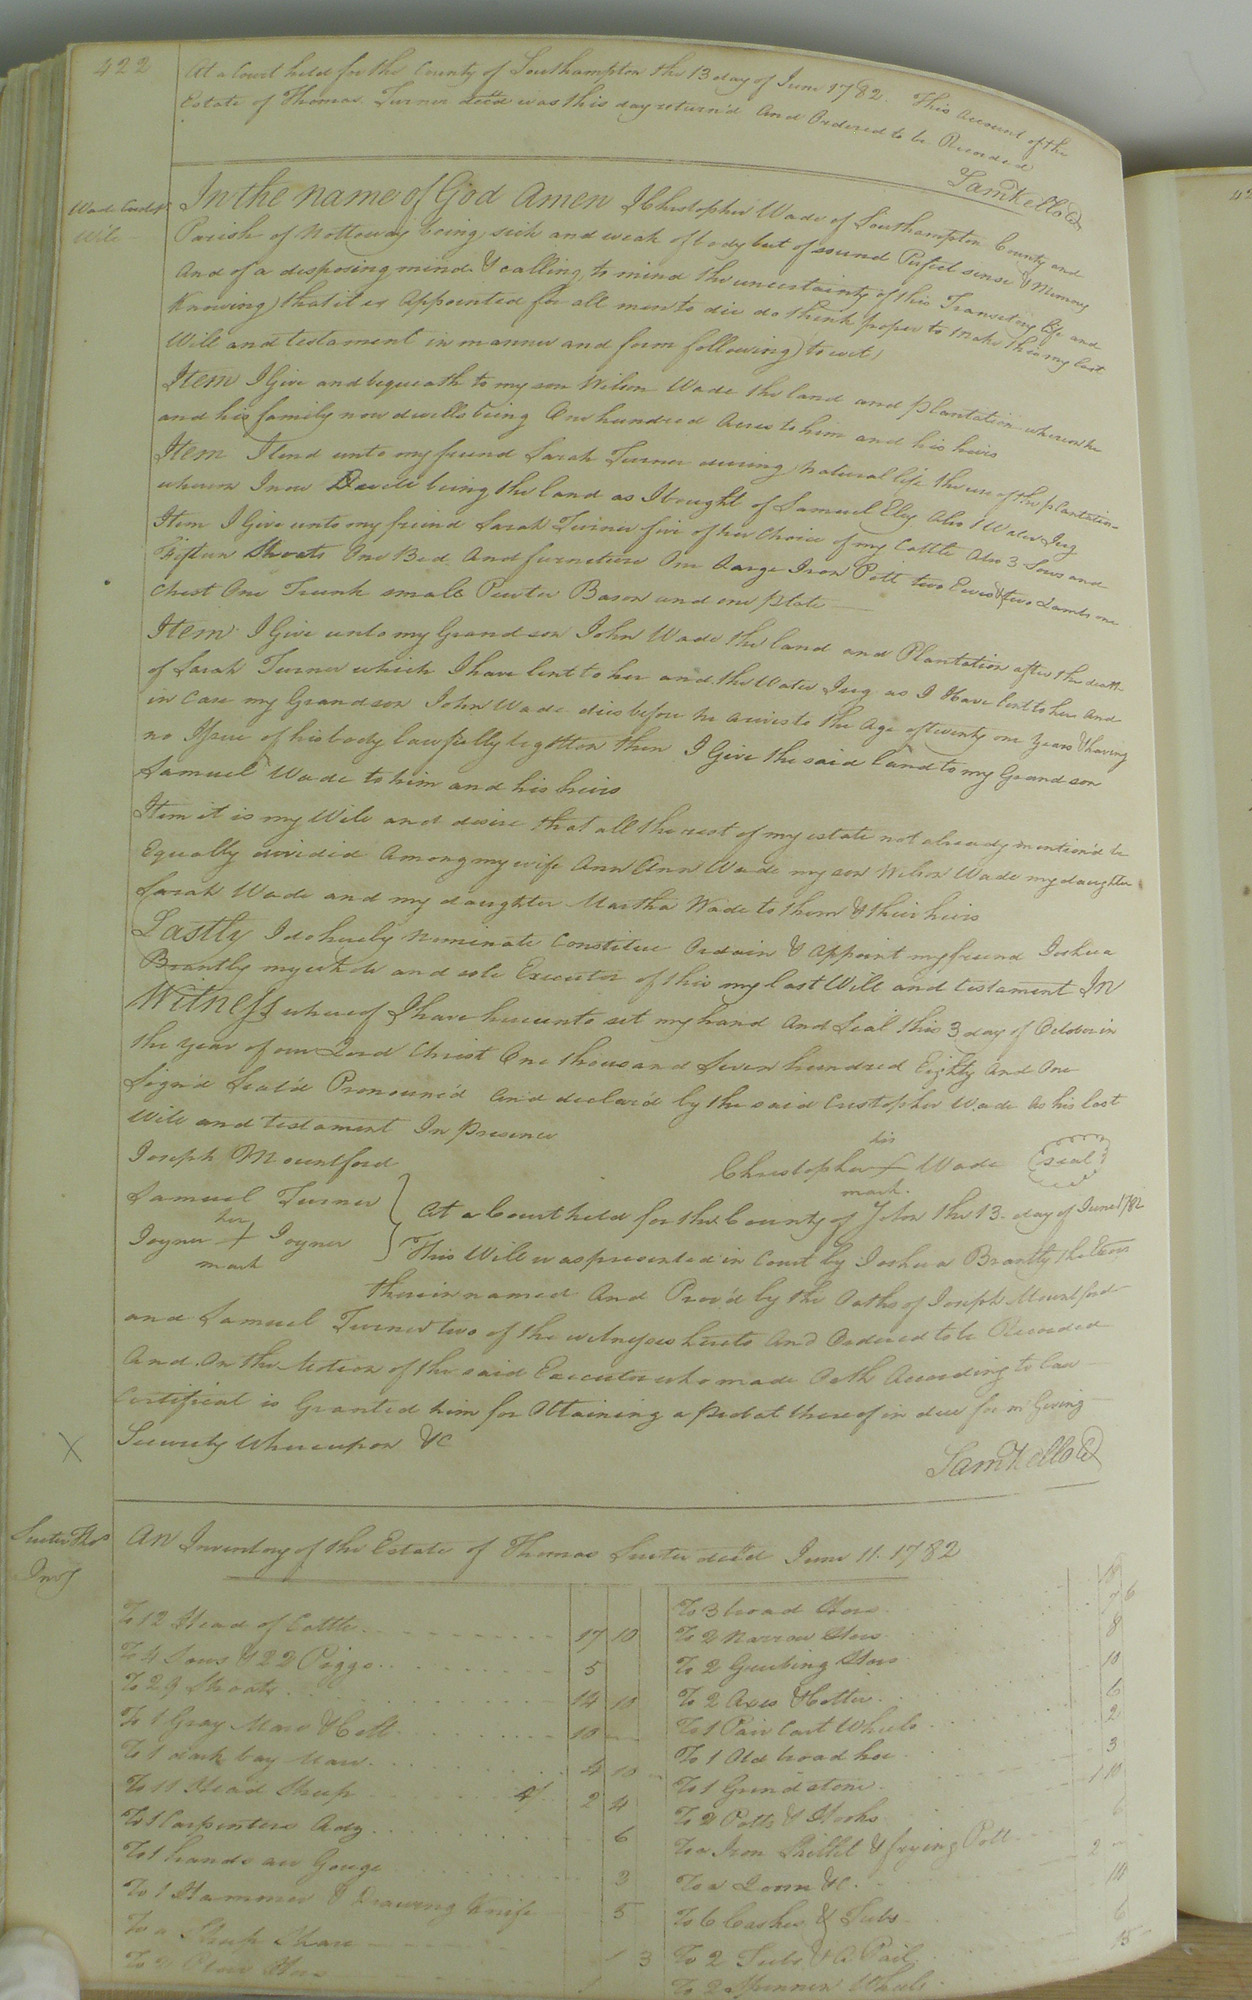 422
At a Court held for the County of Southampton the 13 day of June 1782 This Account of the
Estate of Thomas Turner decd was this day return'd And Ordered to be Recorded
Saml Kello Ck
Wade Cristr
Will
In the name of God Amen I Christopher Wade of Southampton County and
Parish of Nottoway being sick and weak of body but of sound Perfect sense & Memory
And of a disposing mind & calling to mind the uncertainty of this Transitory life and
Knowing that it is Appointed for all men to die do think proper to make this my last
Will and testament in manner and form following) to wit)
Item I Give and bequeath to my son Wilson Wade the land and plantation wheron he
and his family now dwells being One hundred Acres to him and his heirs
Item I lend unto my friend Sarah Turner during natural life the use of the plantation
wheron I now Dwell being the land as I bought of Samuel Eley Also 1 Water Jug
Item I Give unto my friend Sarah Turner five of her Choice of my Cattle Also 3 Sows and
Fifteen Shoats One Bed And furneture One Large Iron Pott two Ewes & two Lambs one
Chest One Trunk small Pewter Bason and one plate
Item I Give unto my Grandson John Wade the land and Plantation after the death
of Sarah Turner which I have lent to her and the Water Jug as I Have lent to her And
in Case my Grandson John Wade dies before he arives to the Age of twenty one Years & having
no Issue of his body lawfully begotten then I Give the said land to my Grandson
Samuel Wade to him and his heirs
Item it is my Will and desire that all the rest of my estate not already mention'd be
Equally divided Among my wife Ann Ann Wade my son Wilson Wade my daughter
Sarah Wade and my daughter Martha Wade to them & their heirs
Lastly I do hereby nominate Constitue Ordain & Appoint my friend Joshua
Brantly my whole and sole Executor of this my last Will and testament In
Witness whereof I have hereunto set my hand And Seal this 3 day of October in
the year of our Lord Christ One thousand Seven hundred Eighty And One
Sign'd Seal'd Pronounc'd and declar'd by the said Cristopher Wade As his last
Will and testament In Presence
his
Christopher + Wade seal
mark.
Joseph Mountford
Samuel Turner
her
Joyner + Joyner
mark
At a Court held for the County of Sohton the 13 day of June 1782
This Will was presented in Court by Joshua Brantly the Exor
therein named And Prov'd by the Oaths of Joseph Mountford
and Samuel Turner two of the witnesses hereto And Ordered to be Recorded
And On the Motion of the said Executor who made Oath According to law
Certificat is Granted him for Obtaining a probat thereof in due form Giving
Security Whereupon &C
Saml Kello Ck
X
Suter Thos
Invy
An Inventory of the Estate of Thomas Suter decd June 11. 1782
To 12 Head of Cattle 17 10
To 4 Sows & 22 Piggs 5
To 29 Shoats 14 10
To 1 Gray Mare & Colt 10
To 1 dark bay Mare 4 10
To 11 Head Sheep 4/ 2 4
To 1 Carpenters Adz 6
To 1 handsaw Gouge 3
To 1 Hammer & Drawing Knife 5
To a Sheep Shear 1 3
To 2 Plow Hoes 1
To 3 broad Hoes
To 2 Narrow Hoes 7 6
To 2 Grubing Hoes 8
To 2 Axes & Cotter 10
To 1 Pair Cart Wheels 6
To 1 Old broad hoe 2
To 1 Grindstone 3
To 2 Potts & Hooks 1 10
To a Iron Skillet & frying Pott 6
To a Loom &c. 2
To 6 Cashes & Tubs 14
To 2 Tubs & A Pail 6
To 2 Spinnen Wheels 15